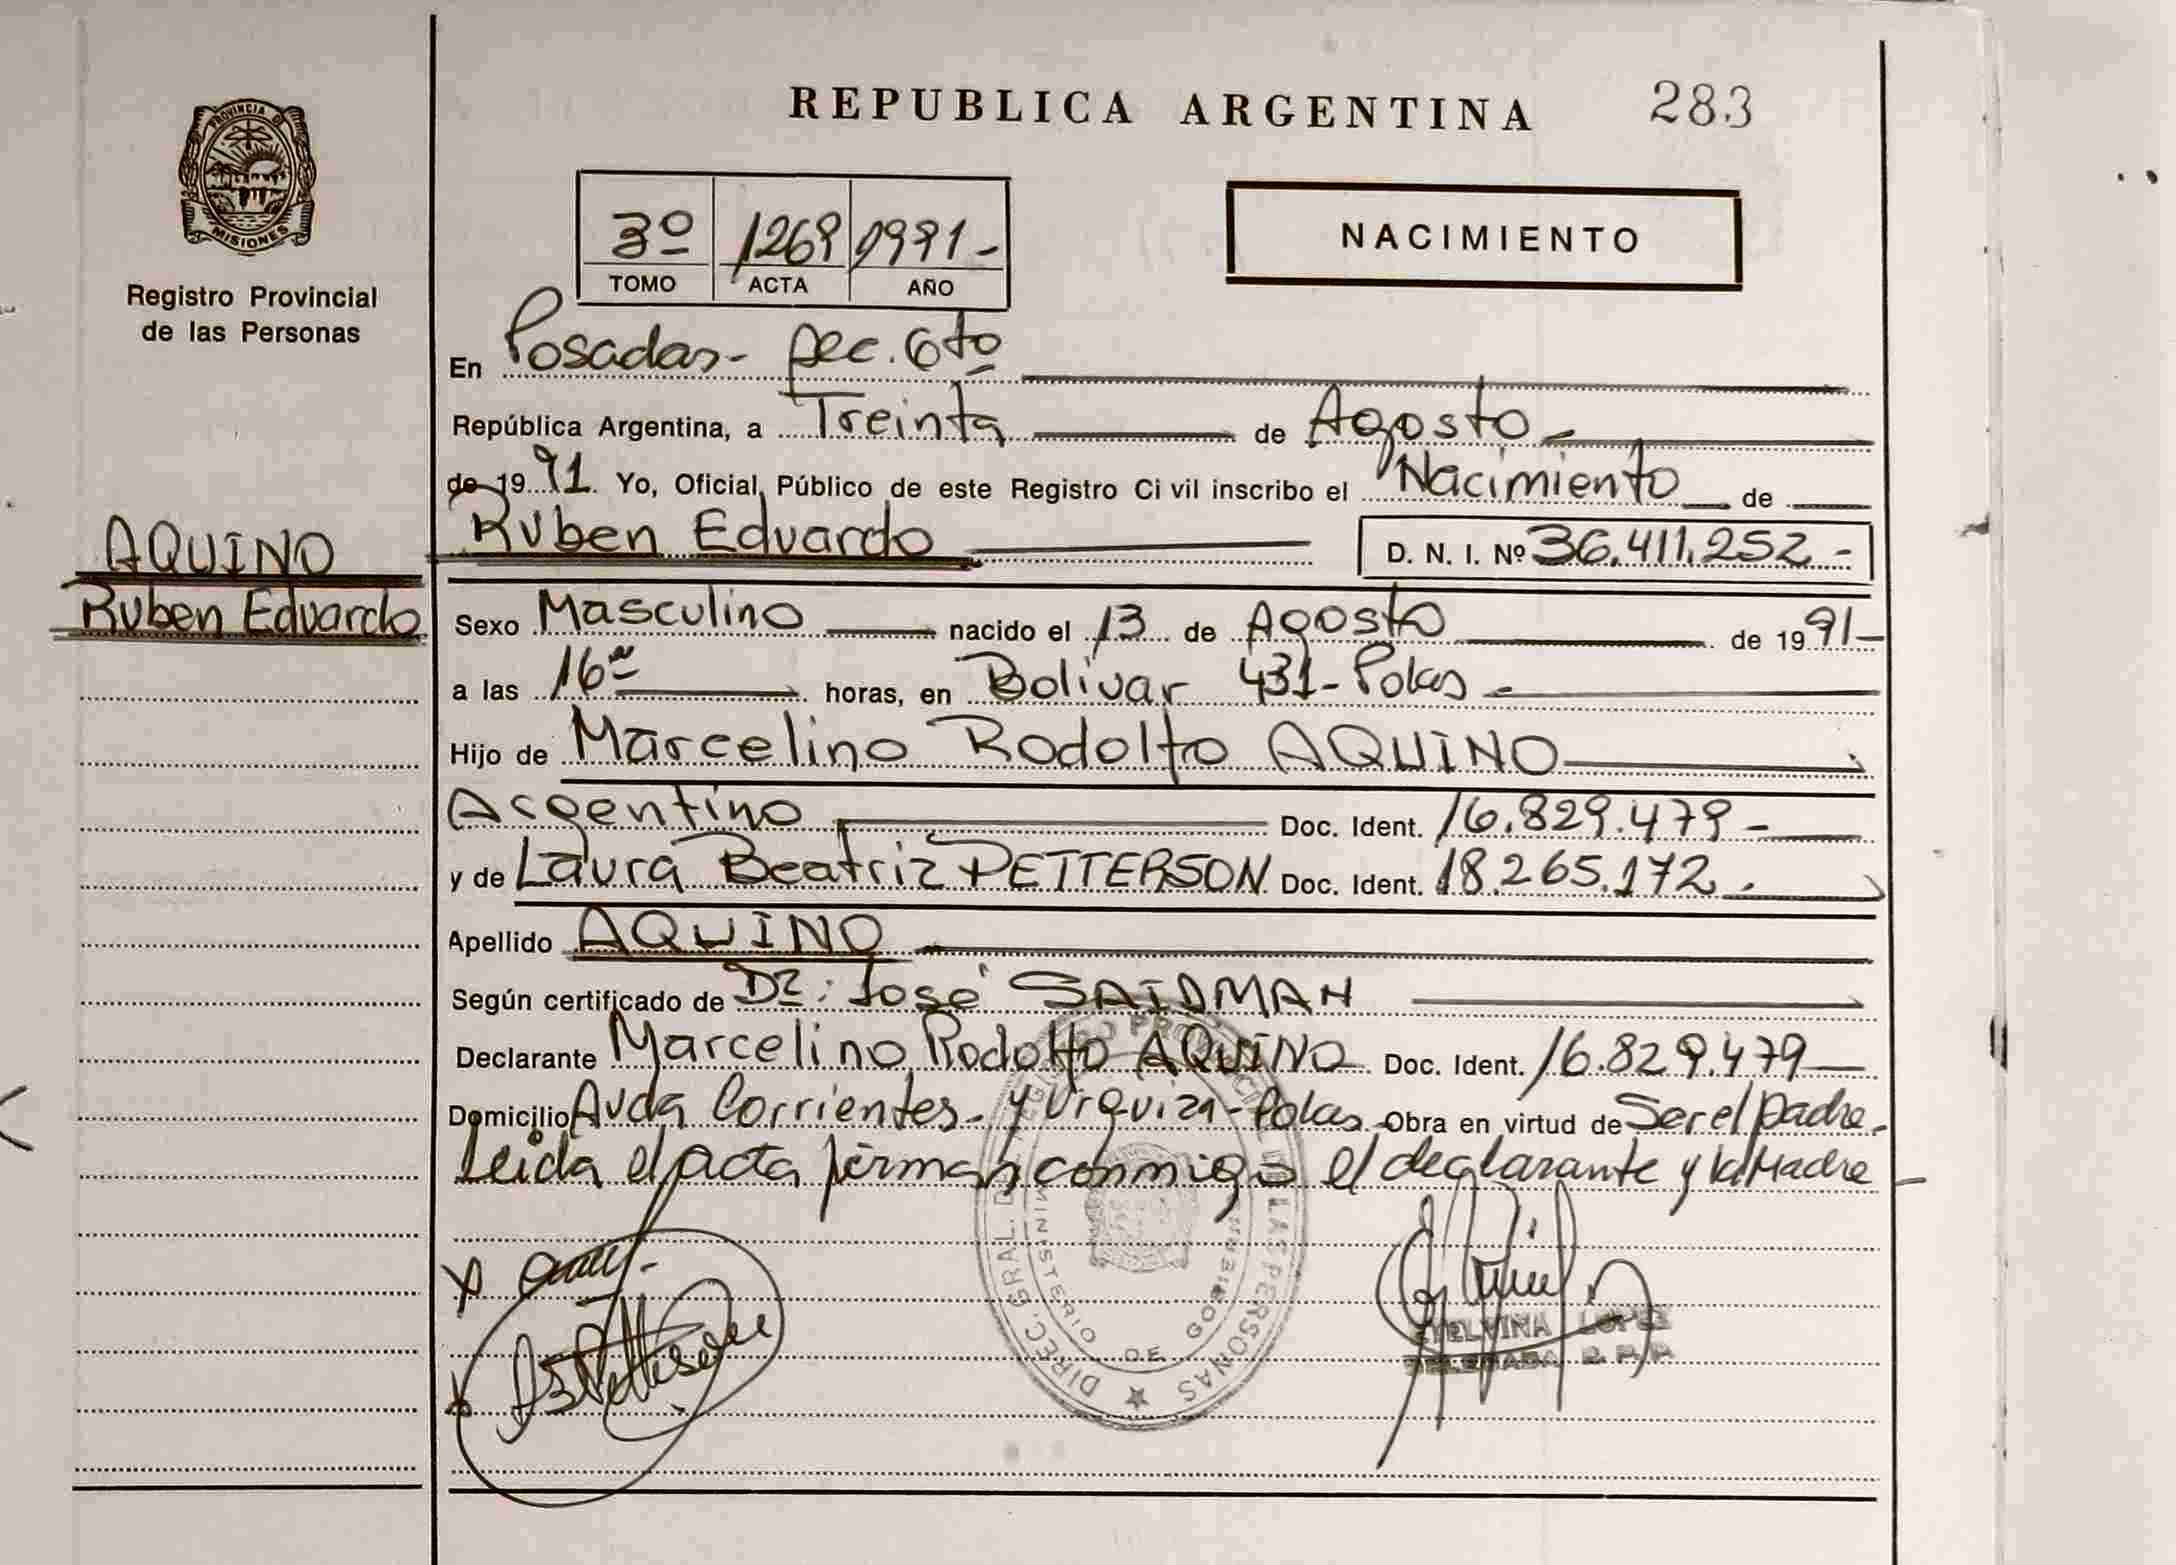 REPUBLICA ARGENTINA 283
PROVINCIA DE
MISIONES
Registro Provincial
de las Personas
3º 1269 1991-
TOMO ACTA AÑO
NACIMIENTO
En Posadas- Sec. 6to
República Argentina, a Treinta de Agosto
de 1991. Yo, Oficial Público de este Registro Civil inscribo el Nacimiento de
AQUINO
Ruben Eduardo
Ruben Eduardo D. N. I. Nº 36.411.252-
Sexo Masculino nacido el 13 de Agosto de 1991-
a las 16 horas, en Bolivar 431- Pdas
Hijo de Marcelino Rodolfo AQUINO
Argentino Doc. Ident. 16.829.479-
y de Laura Beatriz PETTERSON Doc. Ident. 18.265.172.
Apellido AQUINO
Según certificado de Dr: José SAIDMAN
Declarante Marcelino Rodolfo AQUINO Doc. Ident. 16.829.479
Domicilio Avda Corrientes y Urquiza- Pdas Obra en virtud de Ser el padre.
Leida el acta firman conmigo el declarante y la Madre
DIREC. GRAL. DEL REGISTRO PROVINCIAL DE LAS PERSONAS
MINISTERIO DE GOBIERNO
ETELVINA LOPEZ
DELEGADA R. P. P.